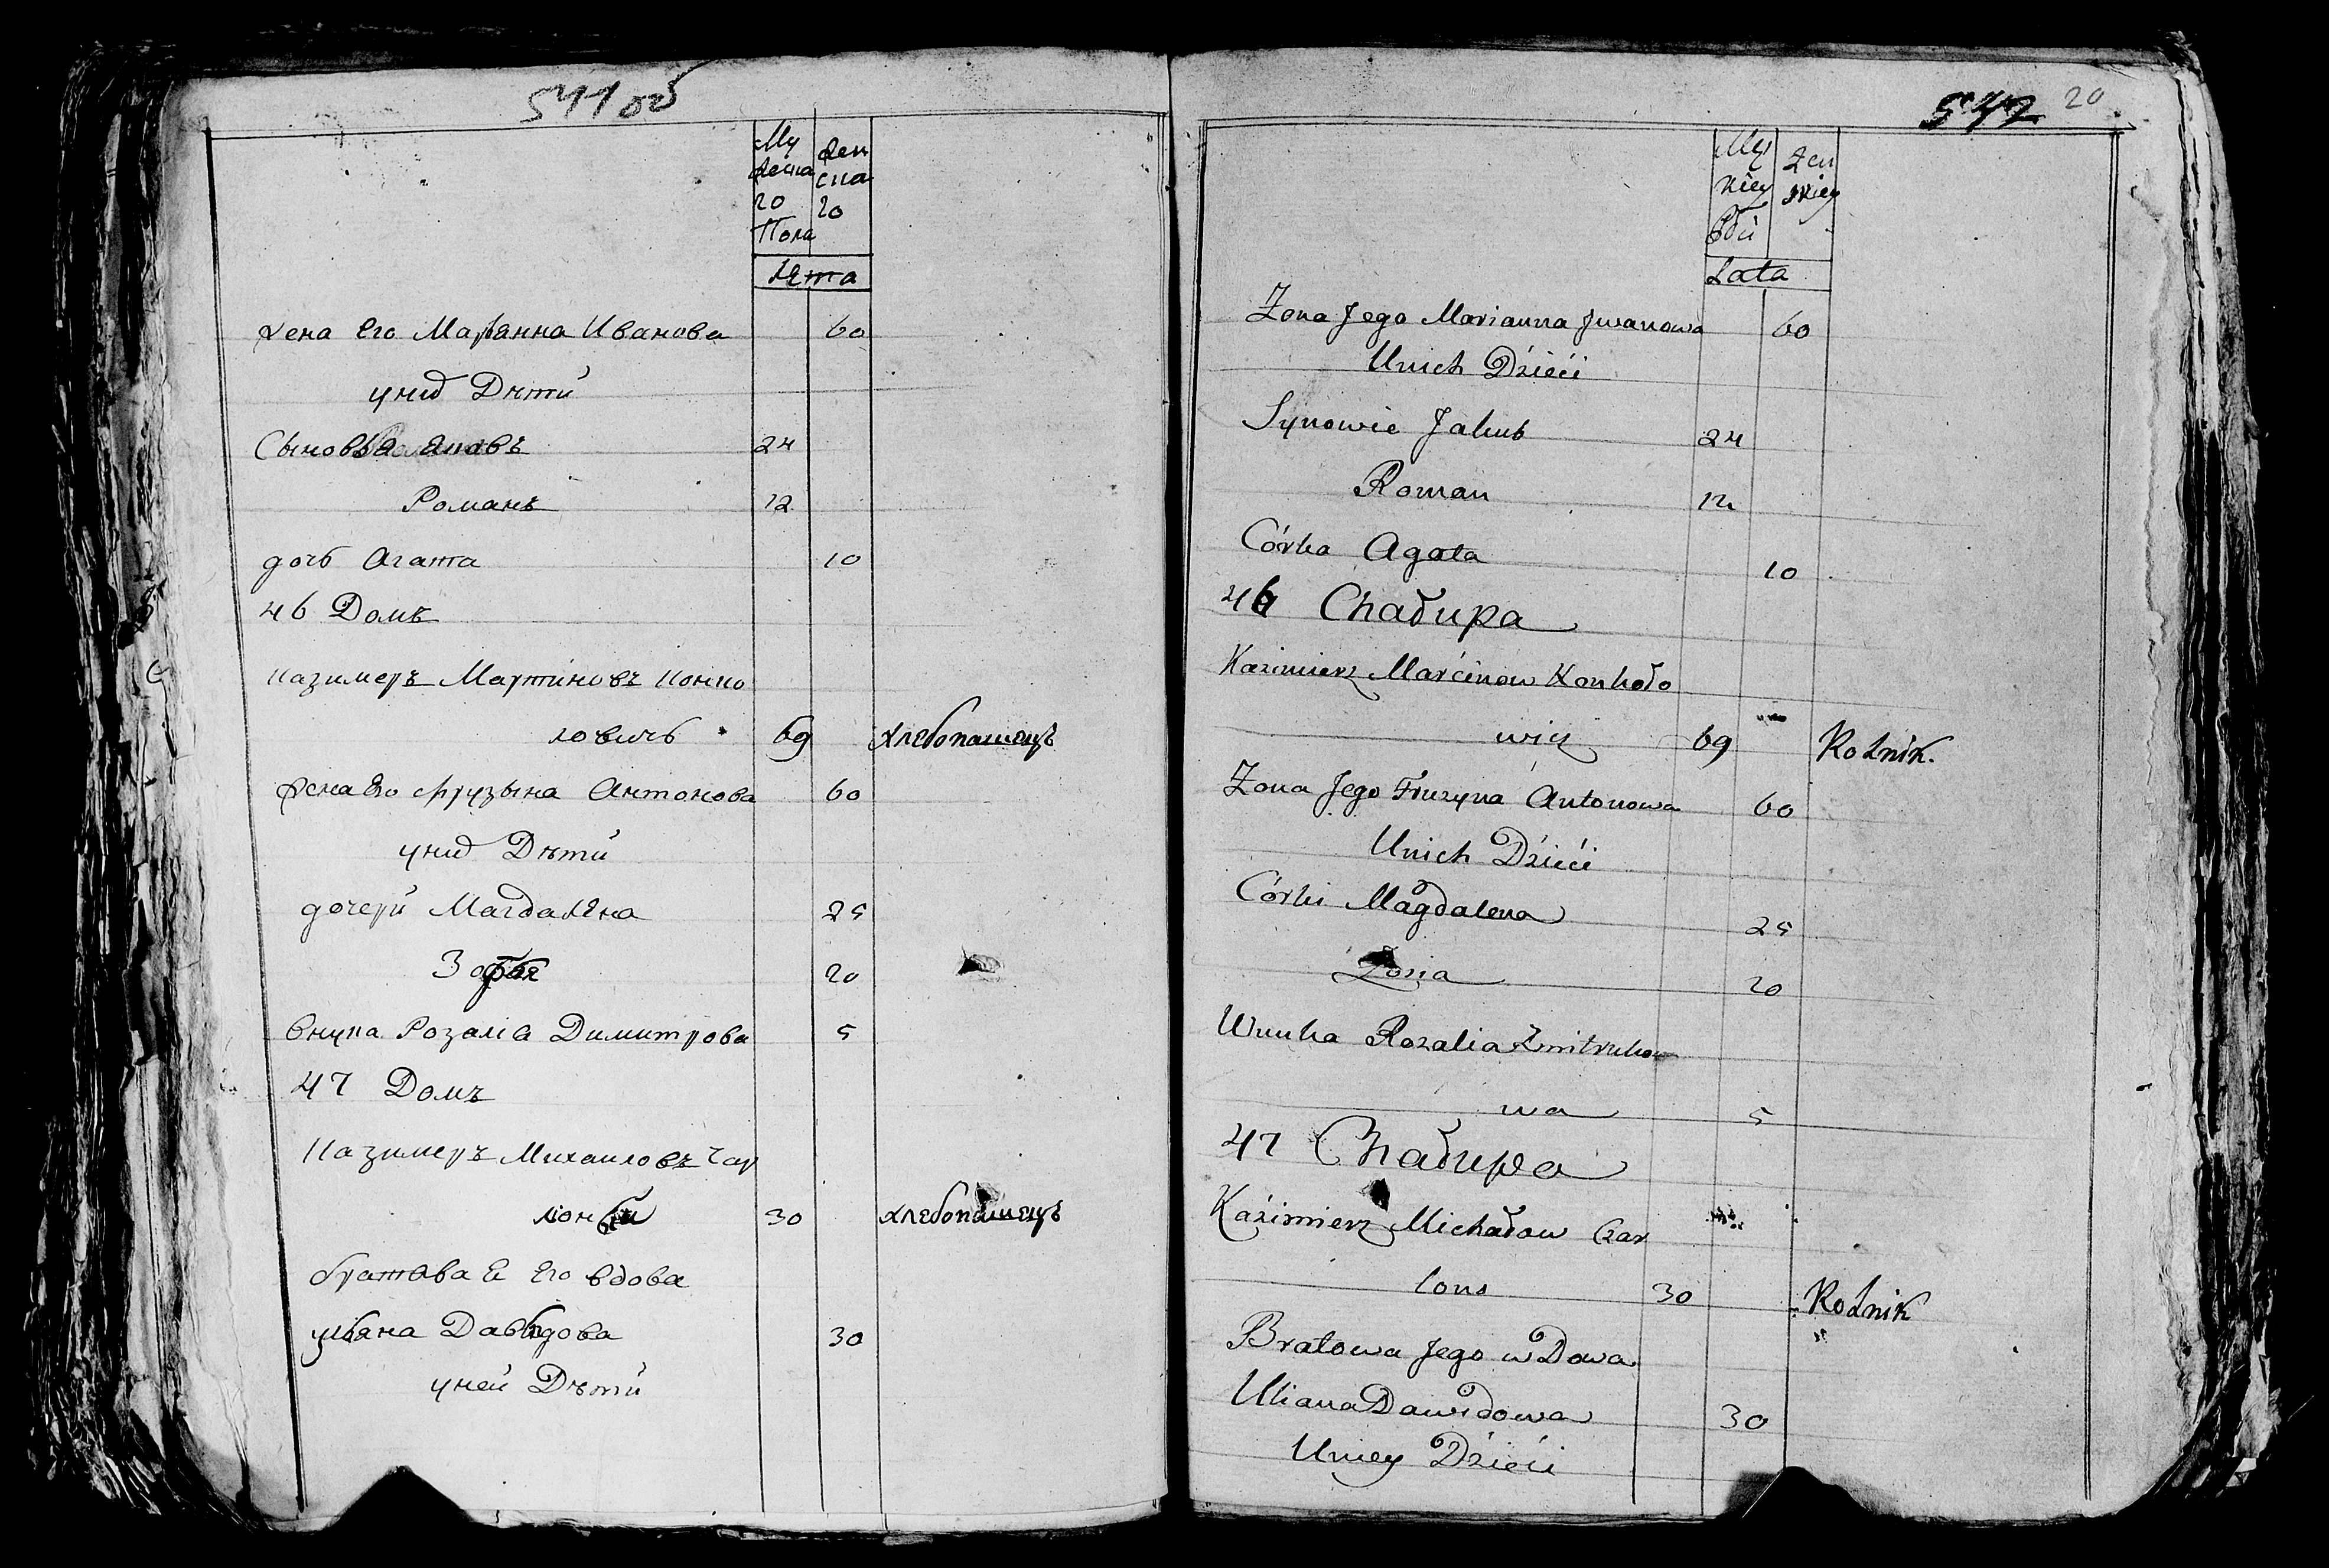 541 об
Му
жеска
го
Пола
Жен
ска
го
Лета
жена Его Марьянна Иванова 60
уних Дѣти
Сыновья Яковъ 24
Романъ 12
дочь Агата 10
46 Домъ
Казимеръ Мартиновъ Конко
ловичь 69 хлебопашецъ
жена Его Фрузына Антонова 60
уних Дѣти
дочери Магдалена 25
Зофья 20
Внука Розаліа Димитрова 5
47 Домъ
Казимеръ Михаиловъ Чар
лон 30 хлебопашецъ
братова Я Его вдова
ульяна Давыдова 30
уней Дѣти
542 20
Męz
kiey
Płci
Żeń
skiey
Lata
Żona Jego Marianna Jwanowa 60
Unich Dzieći
Synowie Jakub 24
Roman 12
Córka Agata 10
46 Chałupa
Kazimierz Marcinow Konkoło
wicz 69 Rolnik.
Żona Jego Fruzyna Antonowa 60
Unich Dzieći
Córki Magdalena 25
Zosia 20
Wnuka Rozalia Zmitrukow
wa 5
47 Chałupa
Kaźimierz Michałow Czar
lons 30 Rolnik
Bratowa Jego wDowa
Uliana Dawidowa 30
Uniey Dzieći